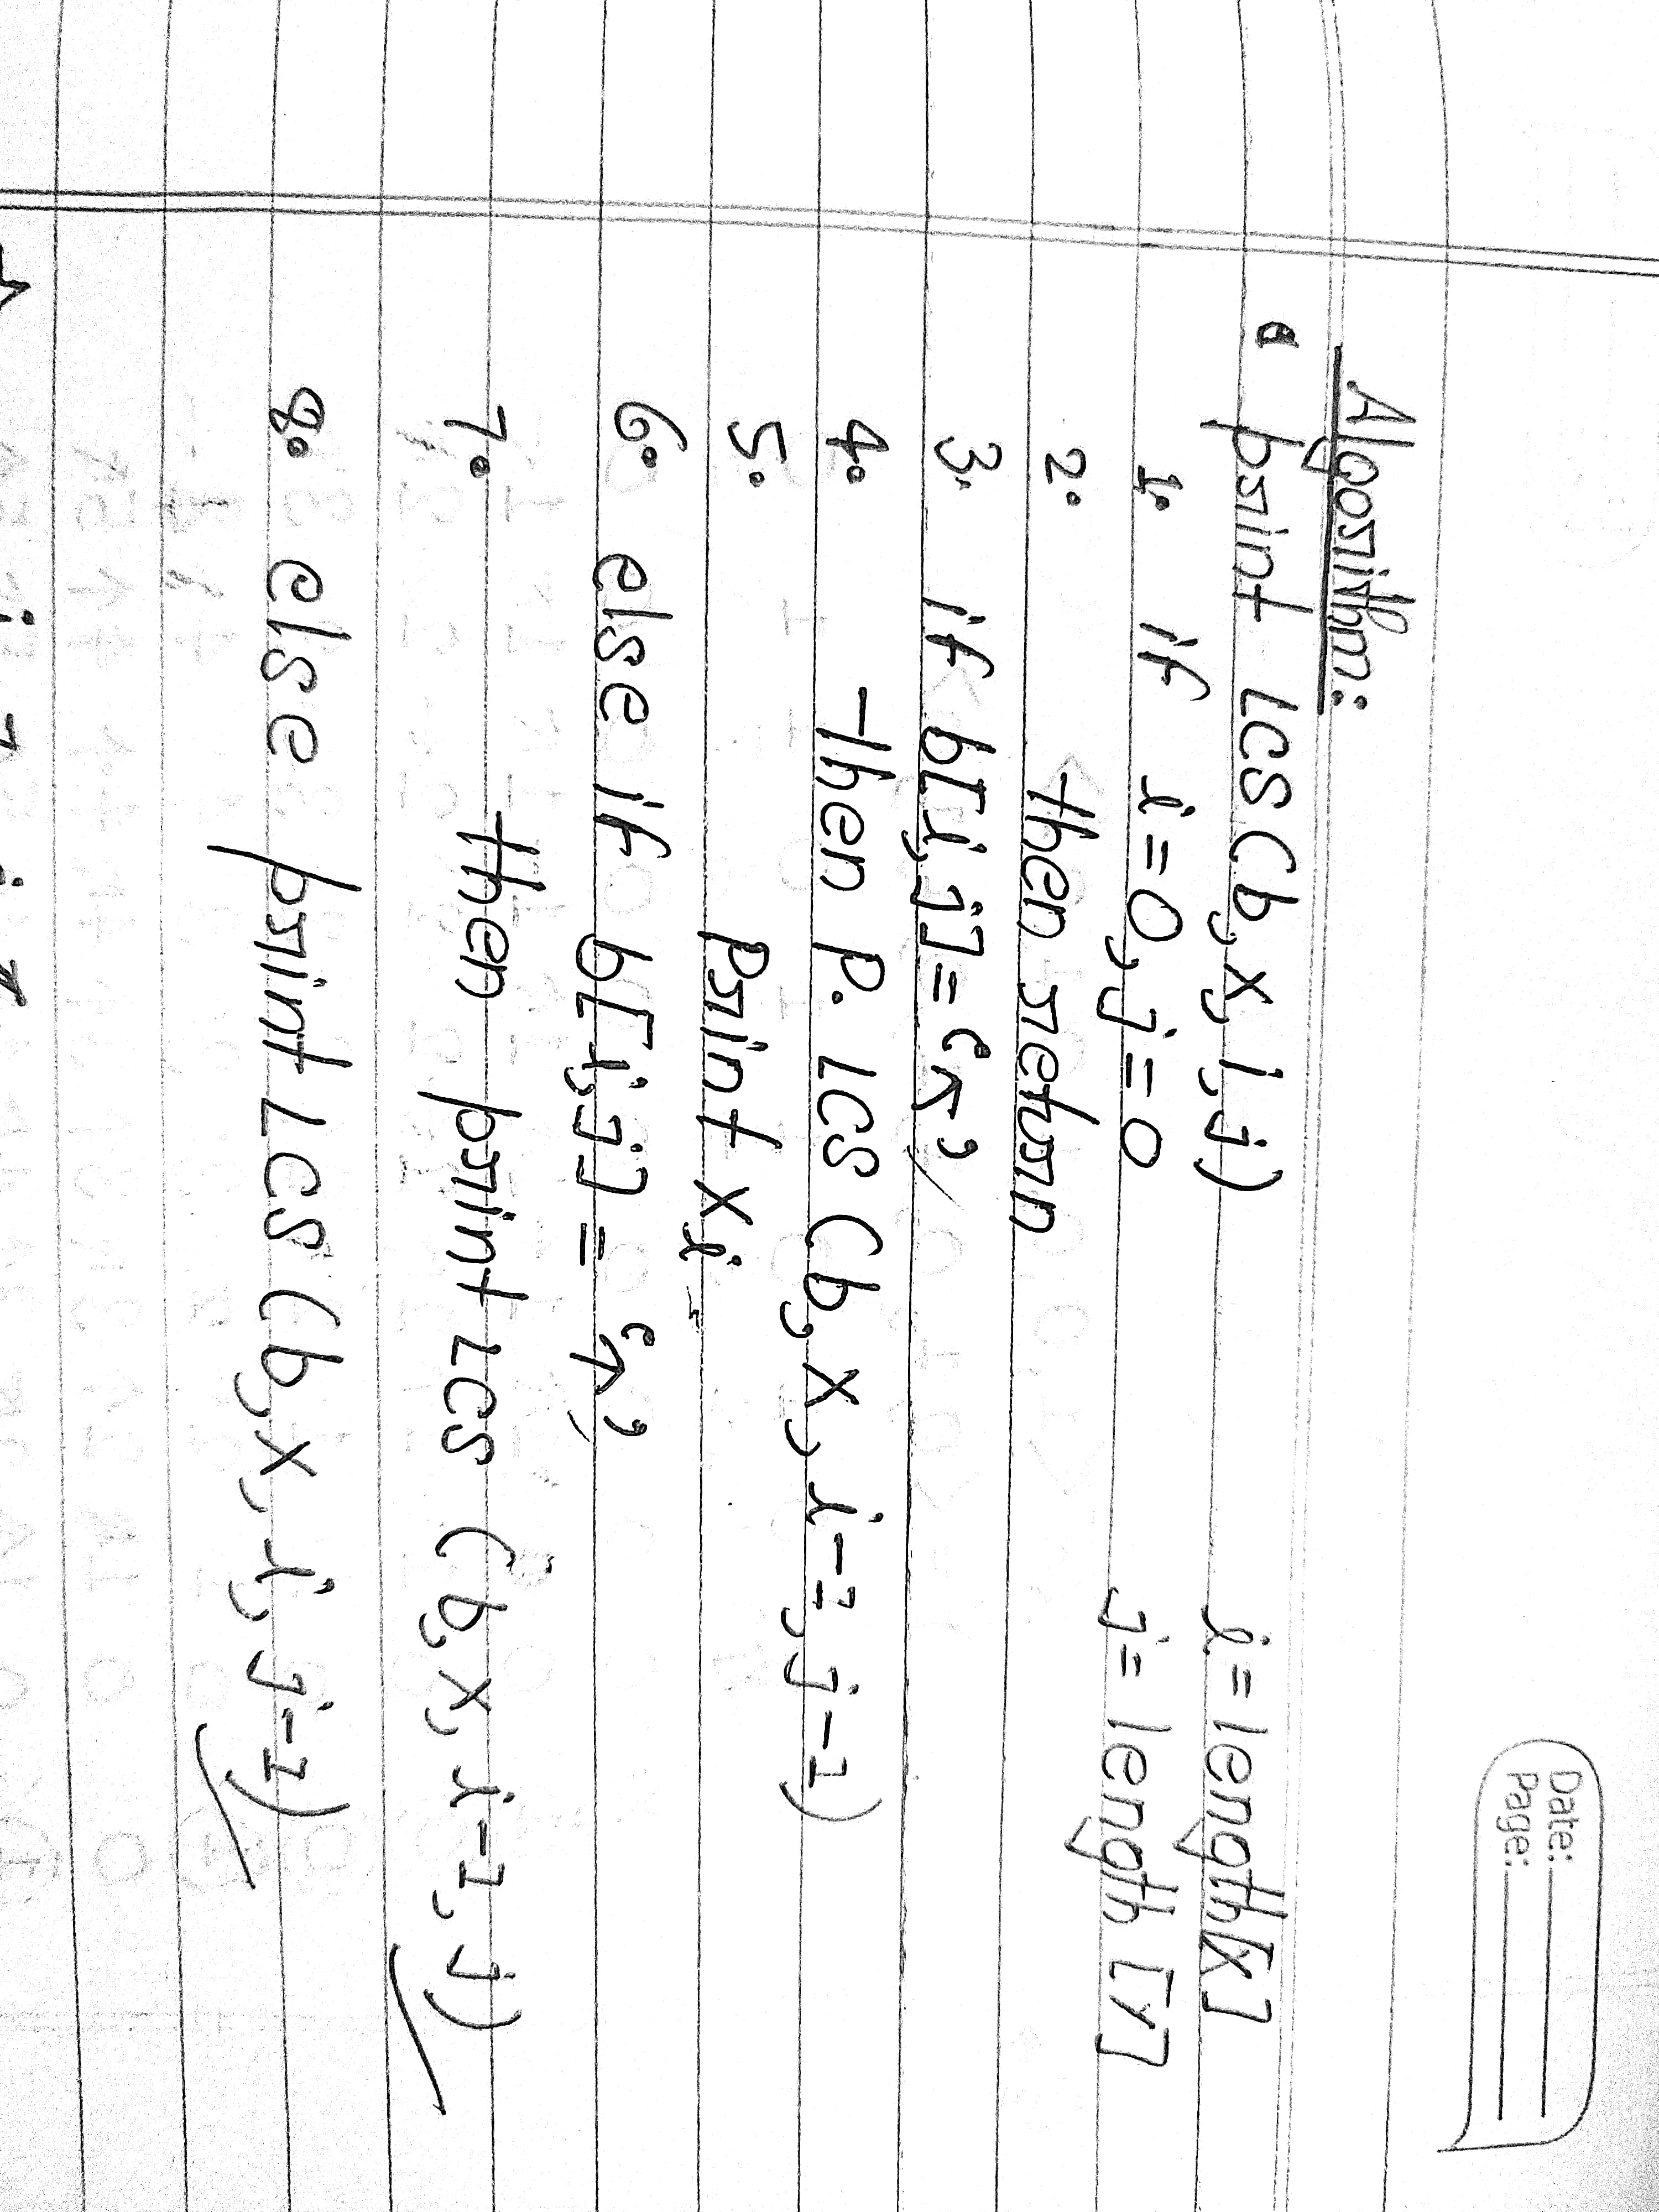 Date:
Page:
Algorithm:
print LCS (b, x, i, j) i = length[X]
1. if i = 0, j = 0 j = length [Y]
2. then return
3. if b[i, j] = '↖'
4. then P. LCS (b, x, i-1, j-1)
5. Print Xi
6. else if b[i, j] = '↑'
7. then print LCS (b, x, i-1, j)
8. else print LCS (b, x, i, j-1)